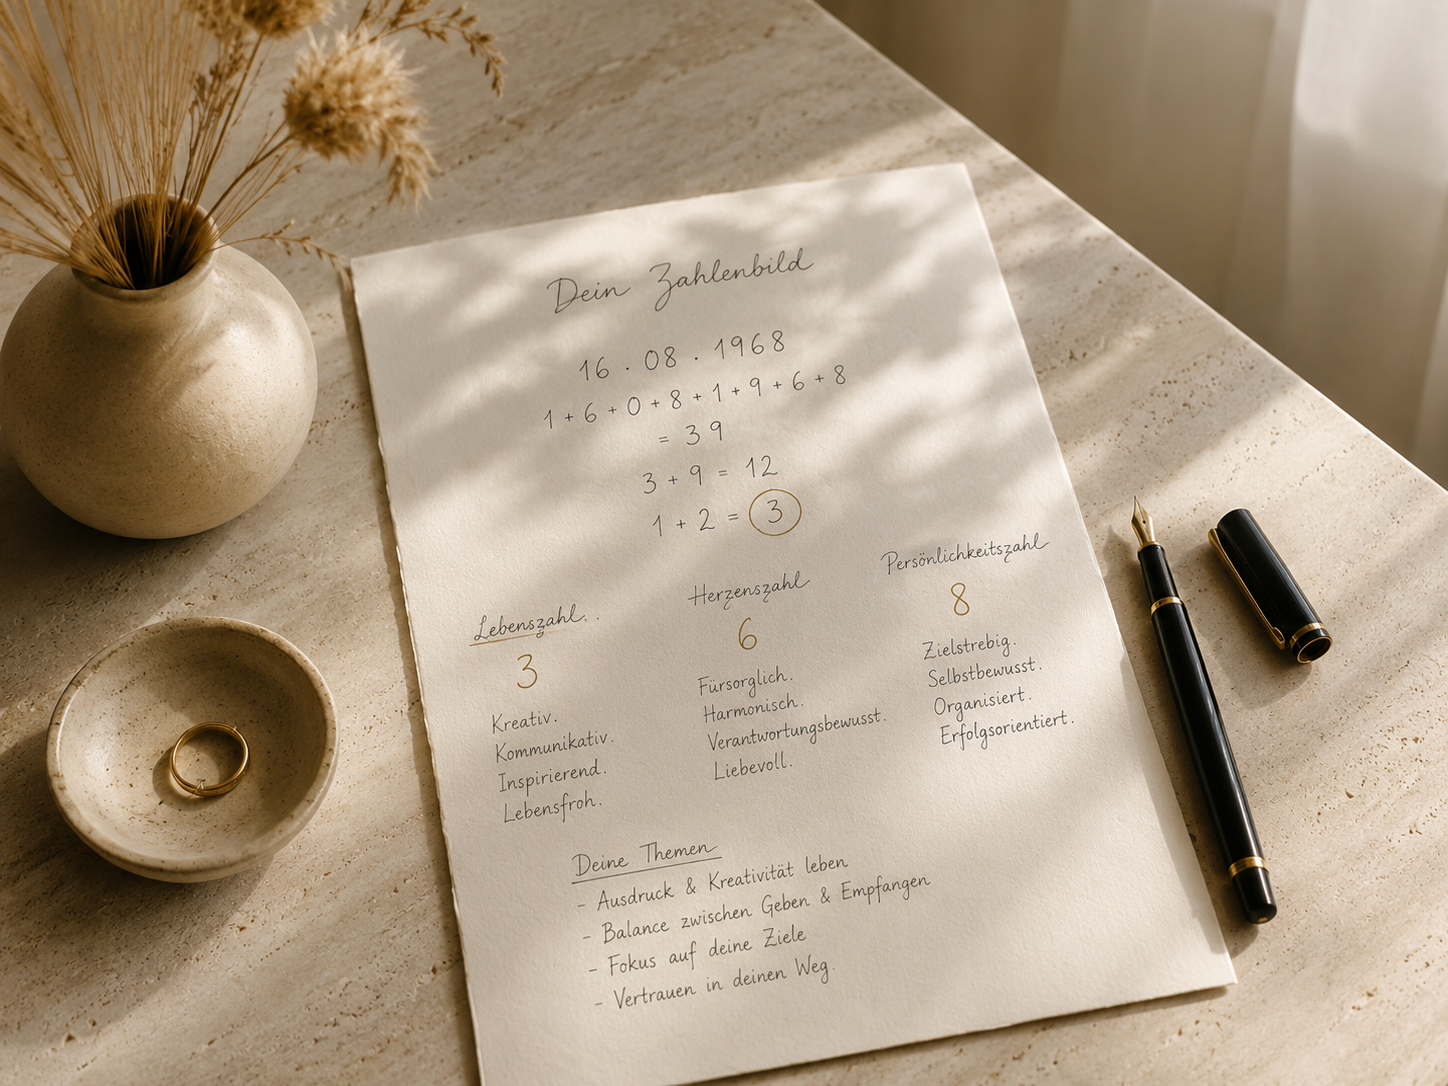 Dein Zahlenbild
16 . 08 . 1968
1 + 6 + 0 + 8 + 1 + 9 + 6 + 8
= 39
3 + 9 = 12
1 + 2 = 3
Lebenszahl
3
Kreativ.
Kommunikativ.
Inspirierend.
Lebensfroh.
Herzenszahl
6
Fürsorglich.
Harmonisch.
Verantwortungsbewusst.
Liebevoll.
Persönlichkeitszahl
8
Zielstrebig.
Selbstbewusst.
Organisiert.
Erfolgsorientiert.
Deine Themen
- Ausdruck & Kreativität leben
- Balance zwischen Geben & Empfangen
- Fokus auf deine Ziele
- Vertrauen in deinen Weg.